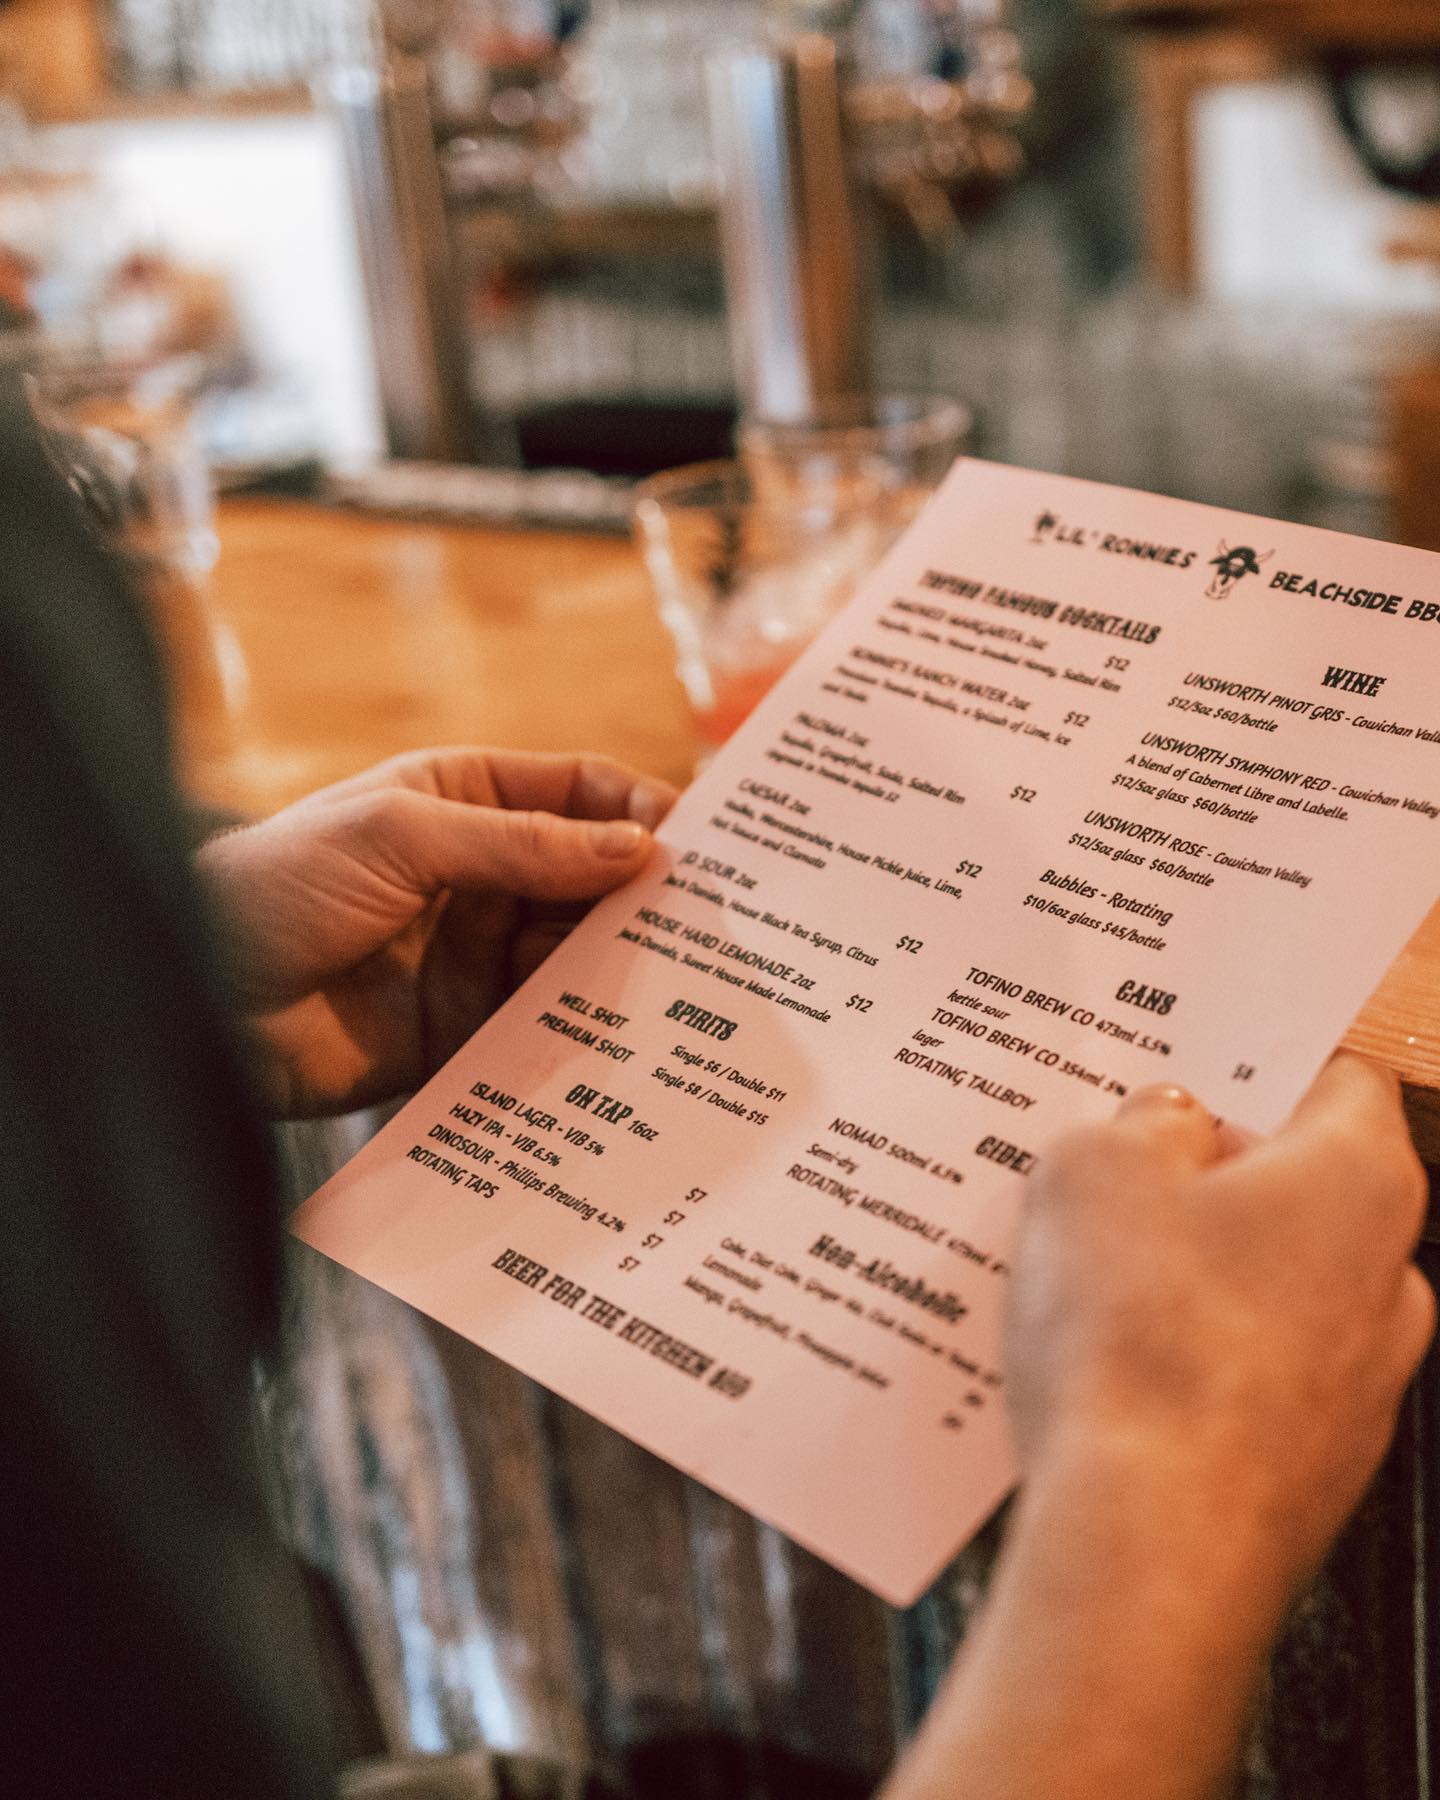 LIL' RONNIES BEACHSIDE BBQ
TOFINO FAMOUS COCKTAILS
SMOKED MARGARITA 2oz $12
Tequila, Lime, House Smoked Honey, Salted Rim
RONNIE'S RANCH WATER 2oz $12
Premium Tequila, a Splash of Lime, Ice
and Soda
PALOMA 2oz $12
Tequila, Grapefruit, Soda, Salted Rim
CAESAR 2oz $12
Vodka, Worcestershire, House Pickle Juice, Lime,
Hot Sauce and Clamato
JD SOUR 2oz $12
Jack Daniels, House Black Tea Syrup, Citrus
HOUSE HARD LEMONADE 2oz $12
Jack Daniels, Sweet House Made Lemonade
SPIRITS
WELL SHOT Single $6 / Double $11
PREMIUM SHOT Single $8 / Double $15
ON TAP 16oz
ISLAND LAGER - VIB 5% $7
HAZY IPA - VIB 6.5% $7
DINOSOUR - Phillips Brewing 4.2% $7
ROTATING TAPS $7
BEER FOR THE KITCHEN
WINE
UNSWORTH PINOT GRIS - Cowichan Vall
$12/5oz $60/bottle
UNSWORTH SYMPHONY RED - Cowichan Valley
A blend of Cabernet Libre and Labelle.
$12/5oz glass $60/bottle
UNSWORTH ROSE - Cowichan Valley
$12/5oz glass $60/bottle
Bubbles - Rotating
$10/6oz glass $45/bottle
CANS
TOFINO BREW CO 473ml 5.5% $8
kettle sour
TOFINO BREW CO 354ml 5%
lager
ROTATING TALLBOY
CIDE
NOMAD 500ml 6.5%
Semi-dry
ROTATING MERRIDALE 473ml
Non-Alcoholic
Coke, Diet Coke, Ginger Ale, Club Soda or
Lemonade
Mango, Grapefruit, Pineapple Juice